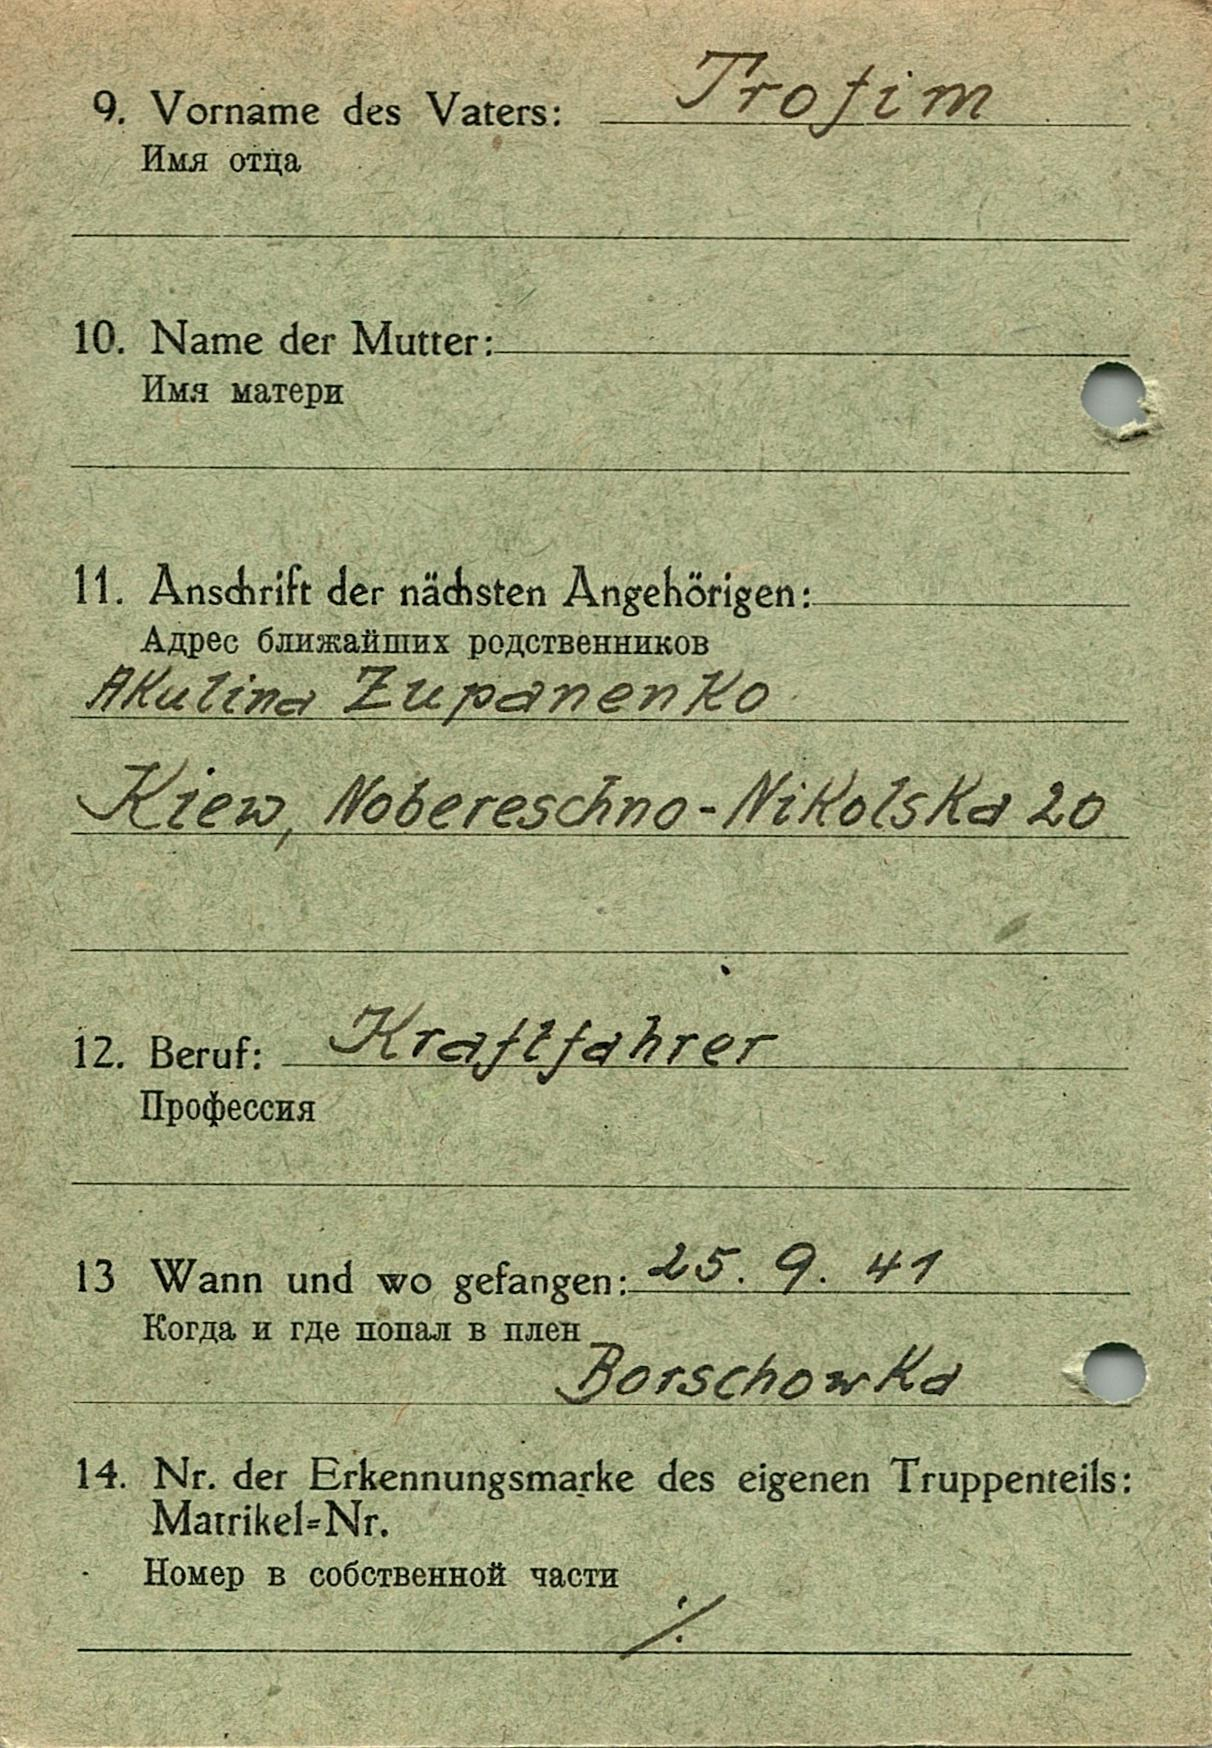 9. Vorname des Vaters: Trofim
Имя отца
10. Name der Mutter:
Имя матери
11. Anschrift der nächsten Angehörigen:
Адрес ближайших родственников
Akulina Zupanenko
Kiew, Nobereschno-Nikolska 20
12. Beruf: Kraftfahrer
Профессия
13 Wann und wo gefangen: 25. 9. 41
Когда и где попал в плен
Borschowka
14. Nr. der Erkennungsmarke des eigenen Truppenteils:
Matrikel=Nr.
Номер в собственной части
⁒